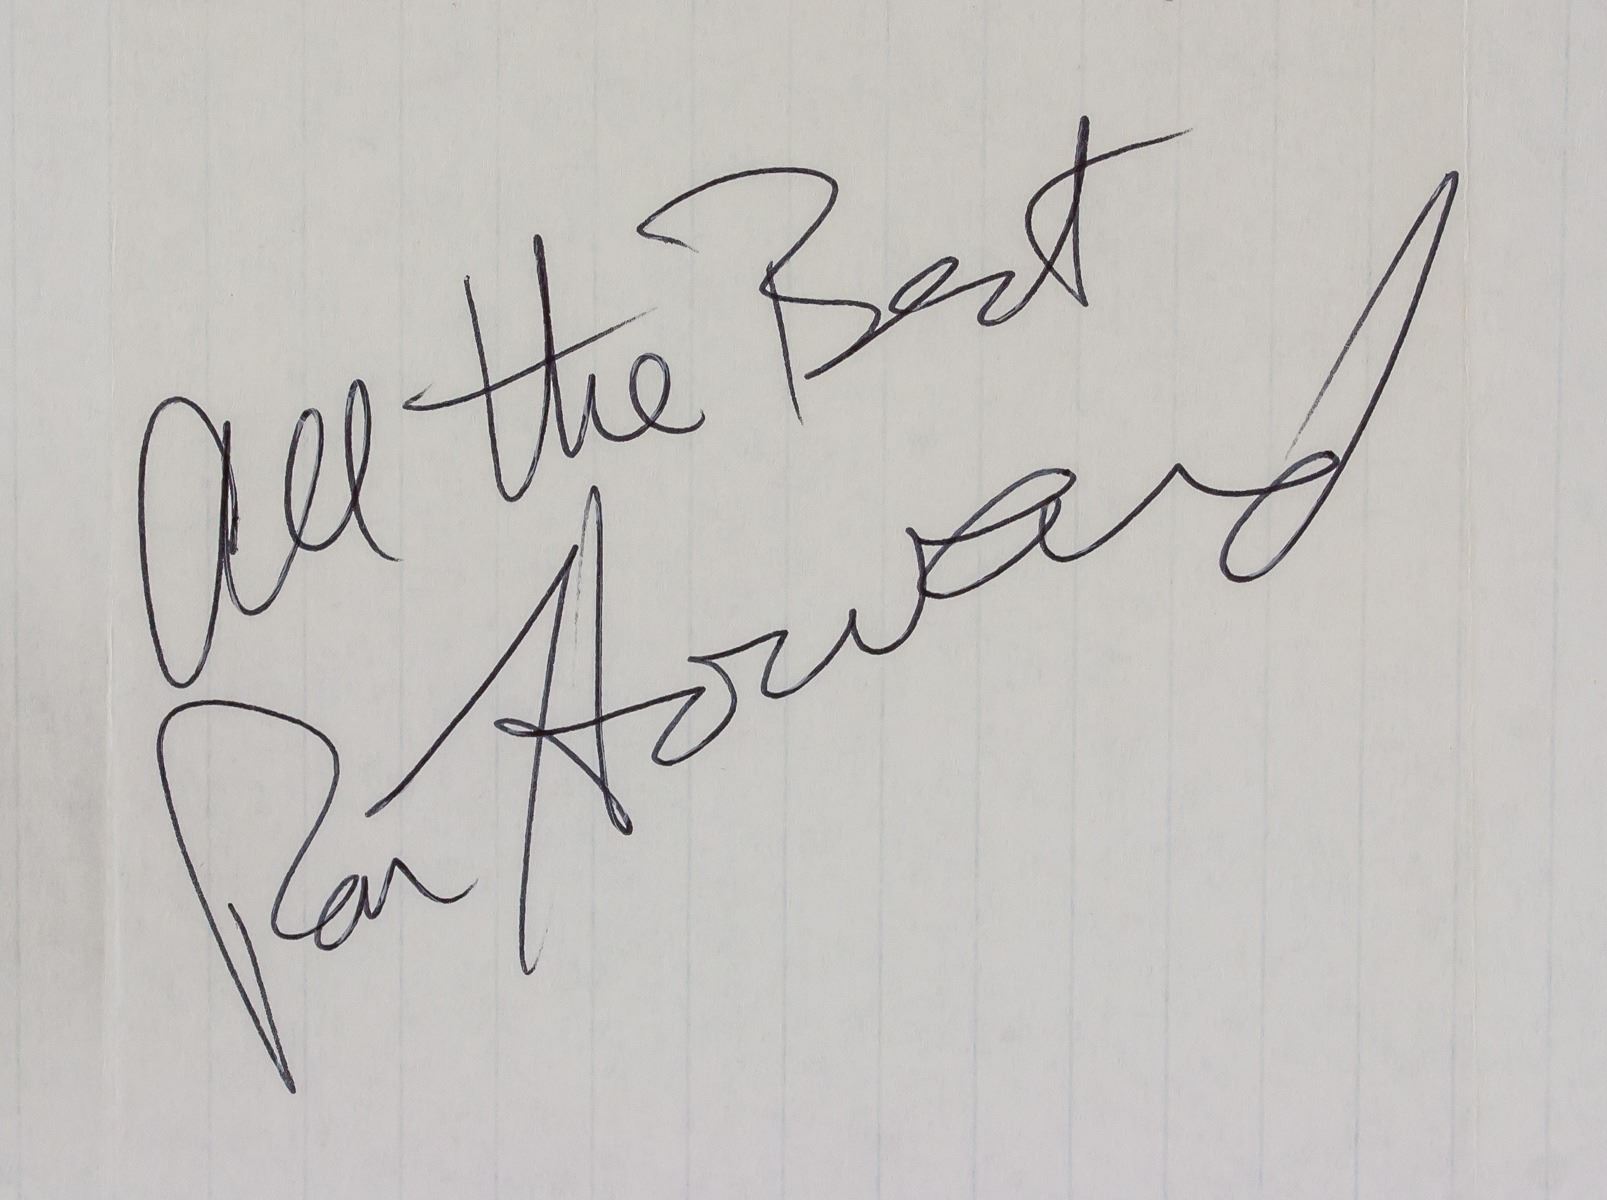 All the Best
Ron Howard